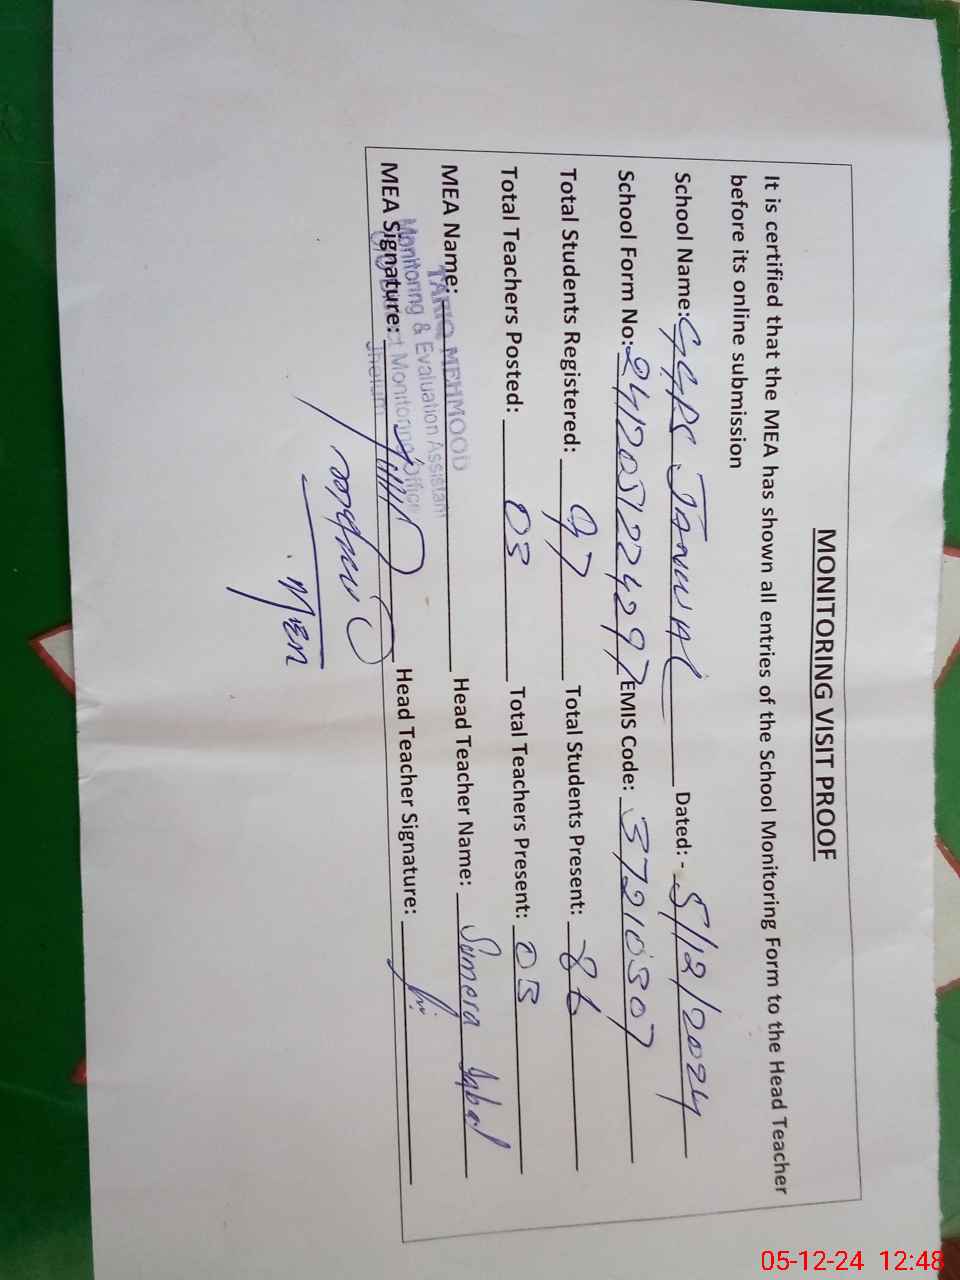 MONITORING VISIT PROOF
It is certified that the MEA has shown all entries of the School Monitoring Form to the Head Teacher
before its online submission
School Name: GGPS Dated: - 5/12/2024
School Form No: 2412051224297 EMIS Code: 37210307
Total Students Registered: 97 Total Students Present: 86
Total Teachers Posted: 03 Total Teachers Present: 03
MEA Name: Head Teacher Name: Sumera Iqbal
TARIQ MEHMOOD
Monitoring & Evaluation Assistant
O/O District Monitoring Office
Jhelum
MEA Signature: Head Teacher Signature:
05-12-24 12:48